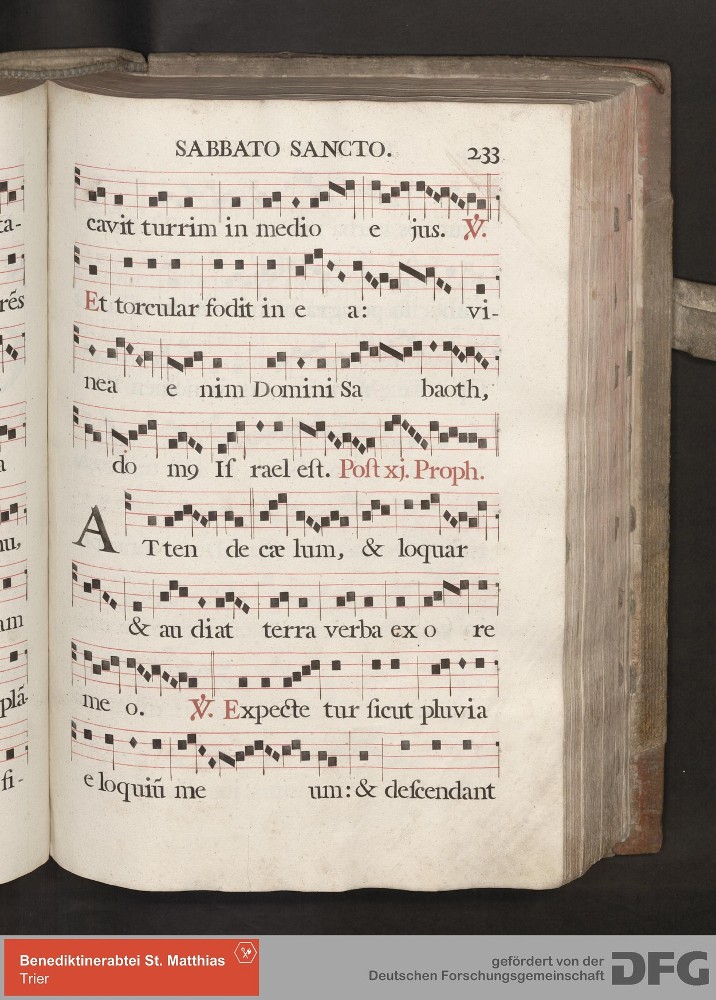 SABBATO SANCTO. 233
cavit turrim in medio e jus. V.
Et torcular fodit in e a: vi-
nea e nim Domini Sa baoth,
do m9 Iſ rael eſt. Poſt xj. Proph.
A T ten de cæ lum, & loquar
& au diat terra verba ex o re
me o. V. Expecte tur ſicut pluvia
e loquiū me um: & deſcendant
ta-
rēs
a
nu,
am
plā-
fi-
Benediktinerabtei St. Matthias
Trier
gefördert von der
Deutschen Forschungsgemeinschaft
DFG